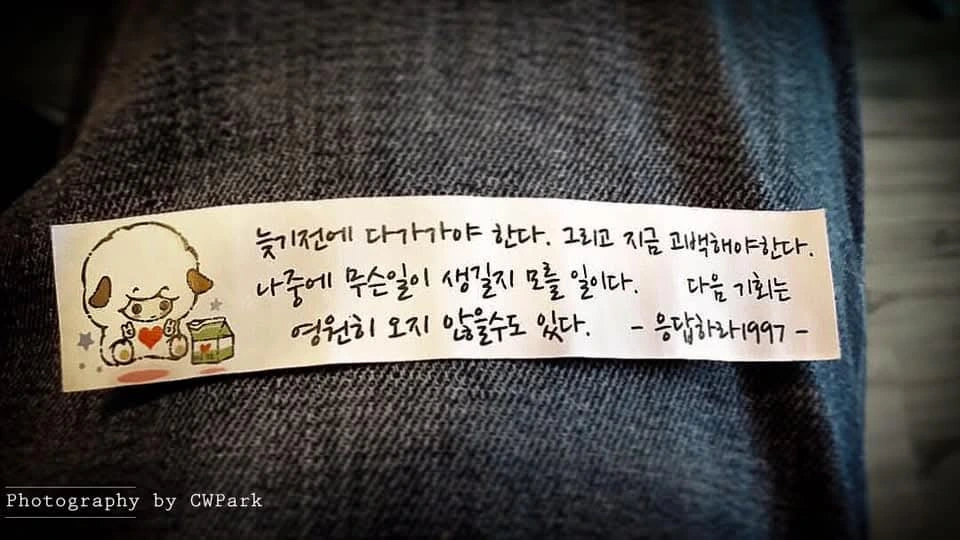 늦기전에 다가가야 한다. 그리고 지금 고백해야한다.
나중에 무슨일이 생길지 모를 일이다. 다음 기회는
영원히 오지 않을수도 있다. - 응답하라1997 -
Photography by CWPark